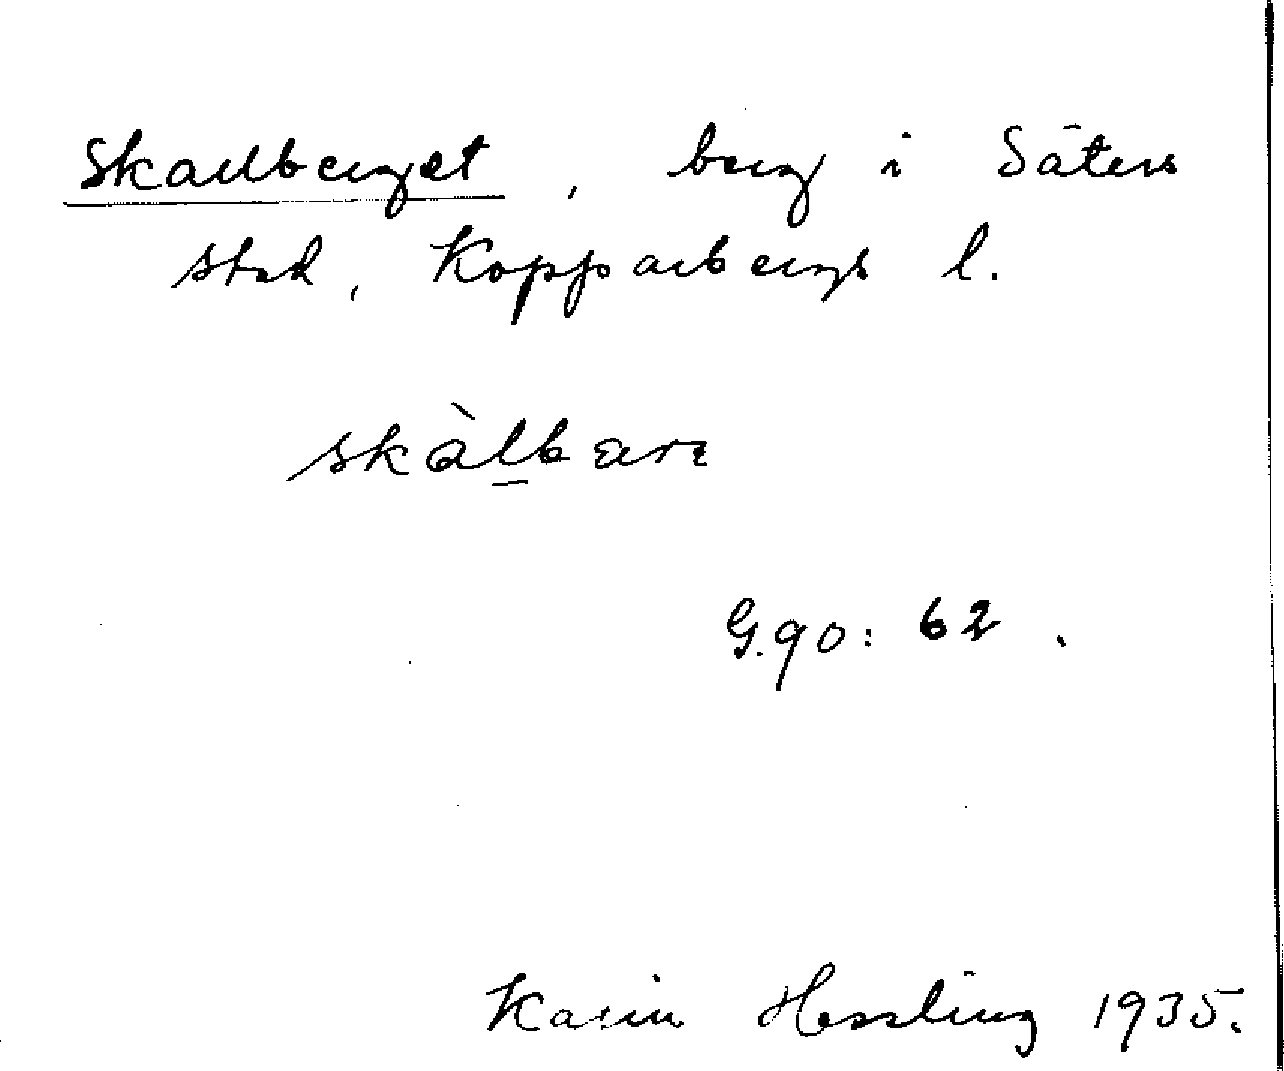 Skarlberget, berg i Säters
stad, Kopparbergs l.
skàl̲barɛ
G.90: 62.
Karin Hessling 1935.